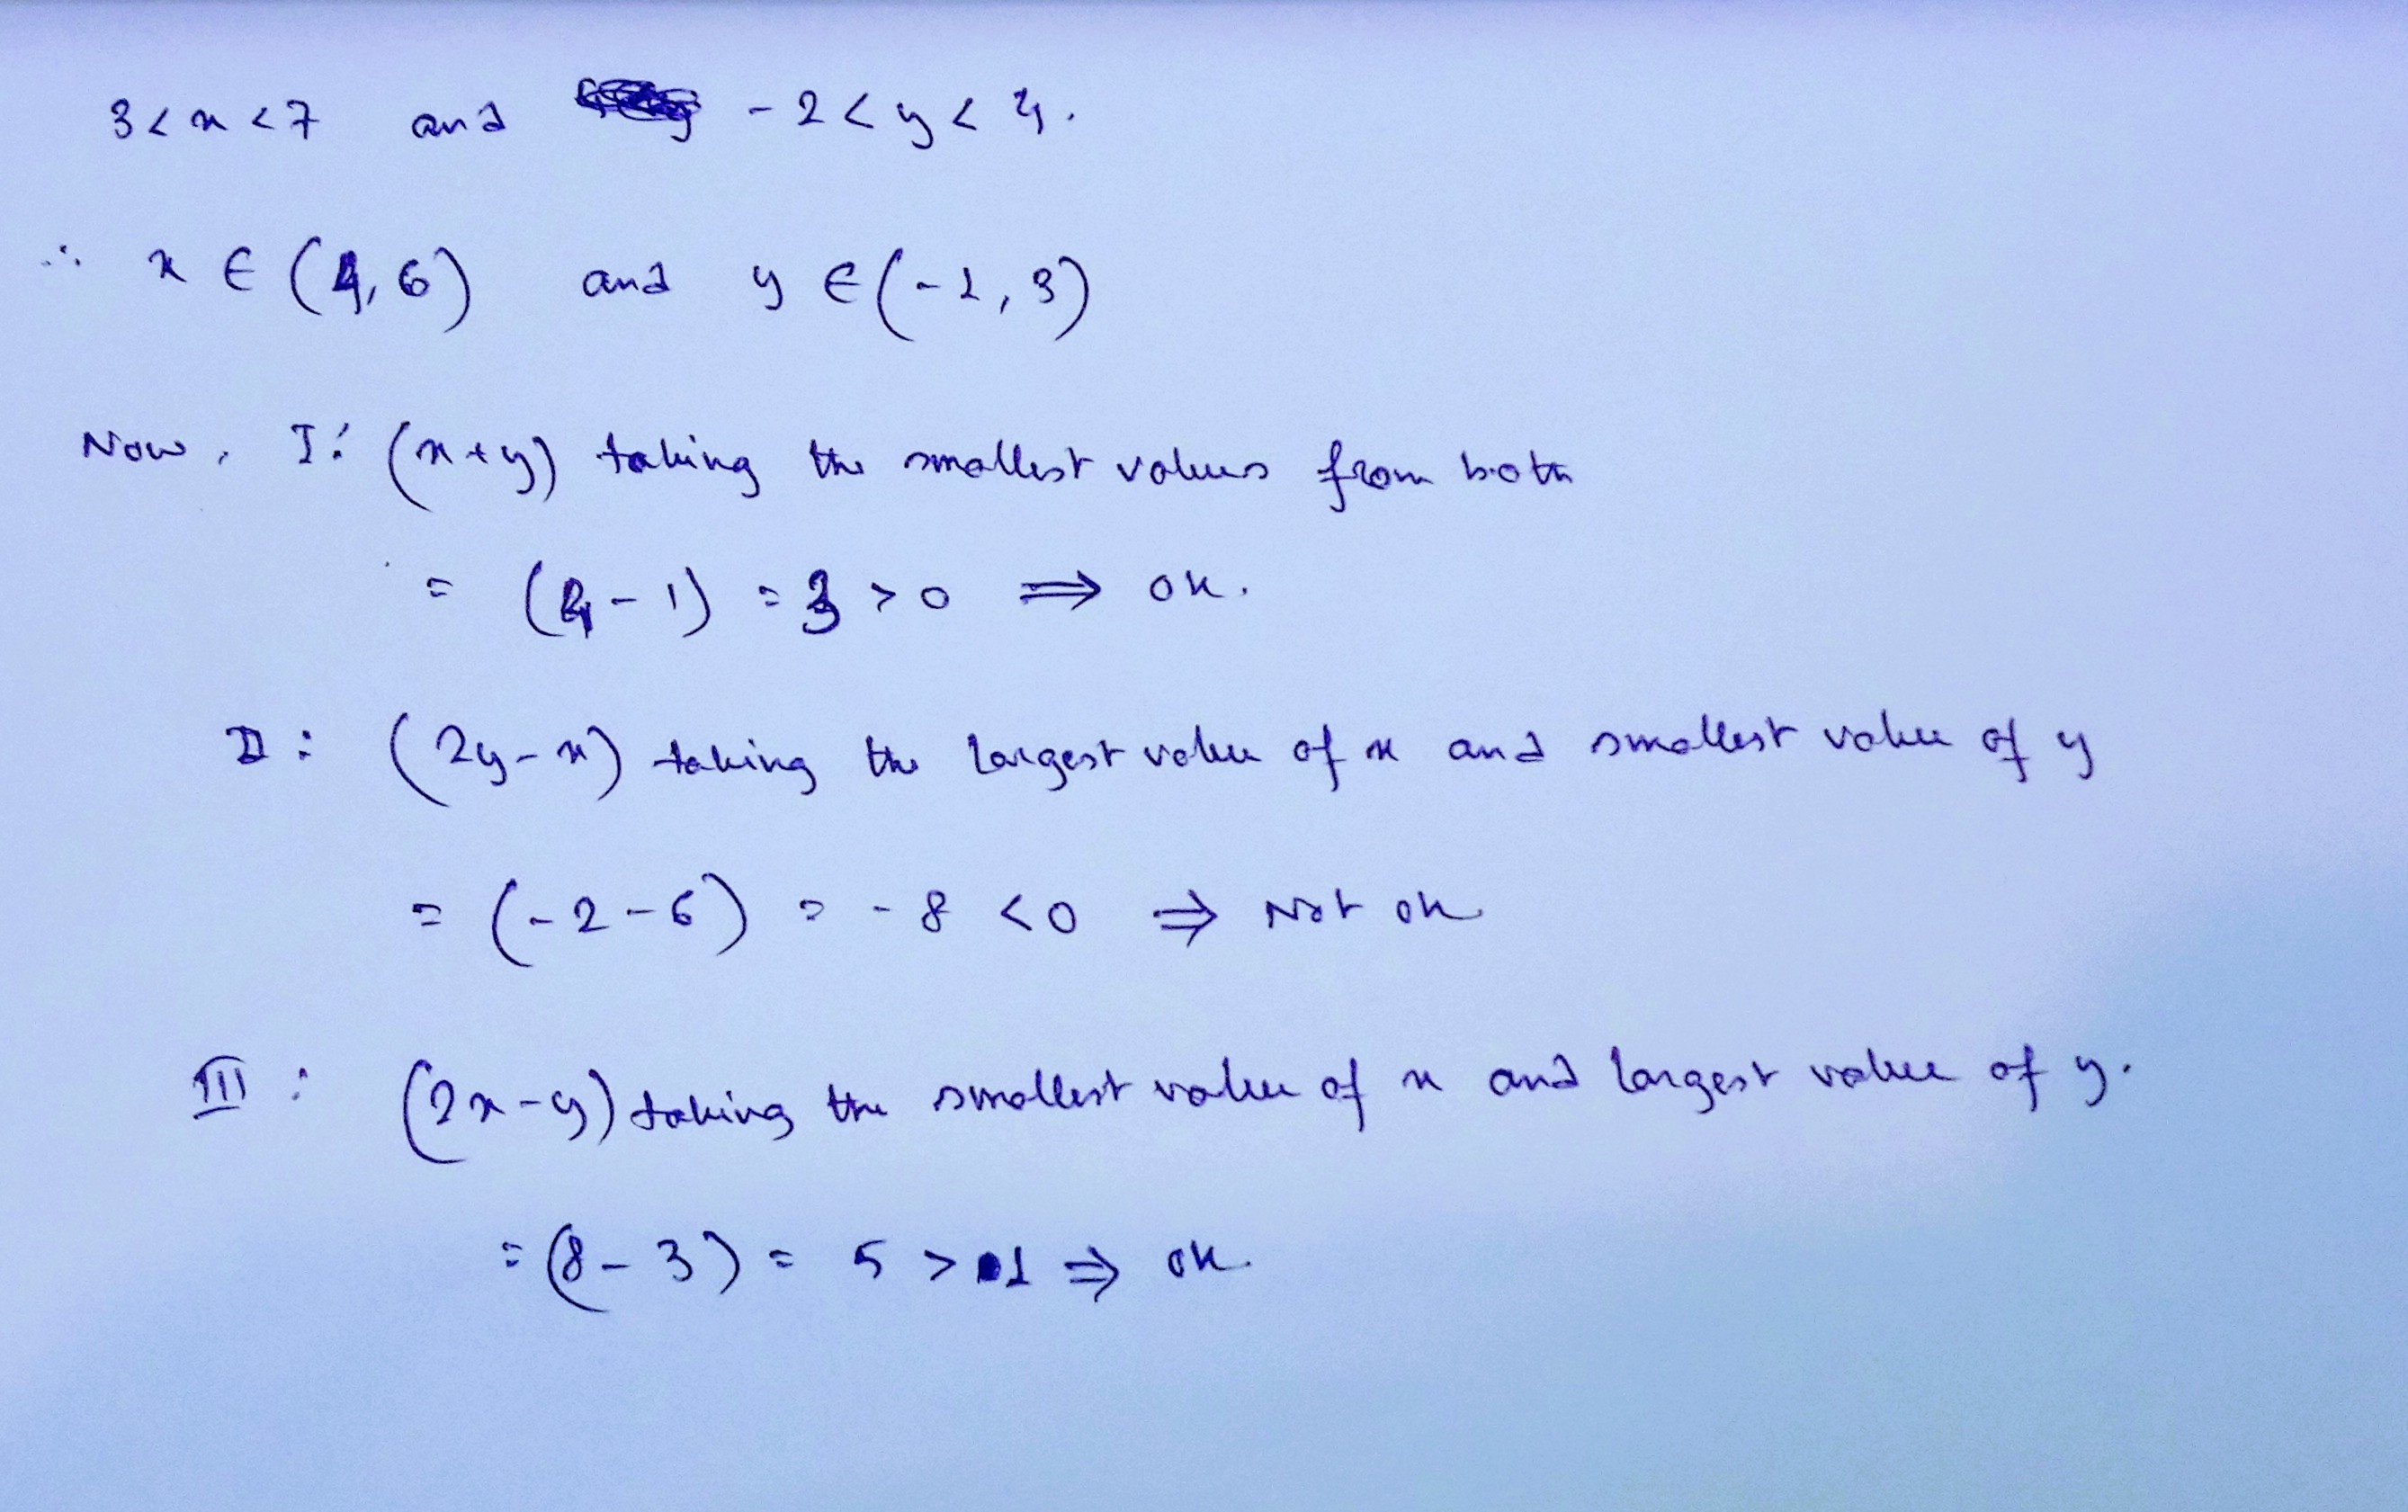 3 < x < 7 and -2 < y < 4.
∴ x ∈ (4, 6) and y ∈ (-1, 3)
Now, I: (x+y) taking the smallest values from both
= (4-1) = 3 > 0 ⇒ ok.
II: (2y-x) taking the largest value of x and smallest value of y
= (-2-6) = -8 < 0 ⇒ Not ok
III: (2x-y) taking the smallest value of x and largest value of y.
= (8-3) = 5 > 1 ⇒ ok.